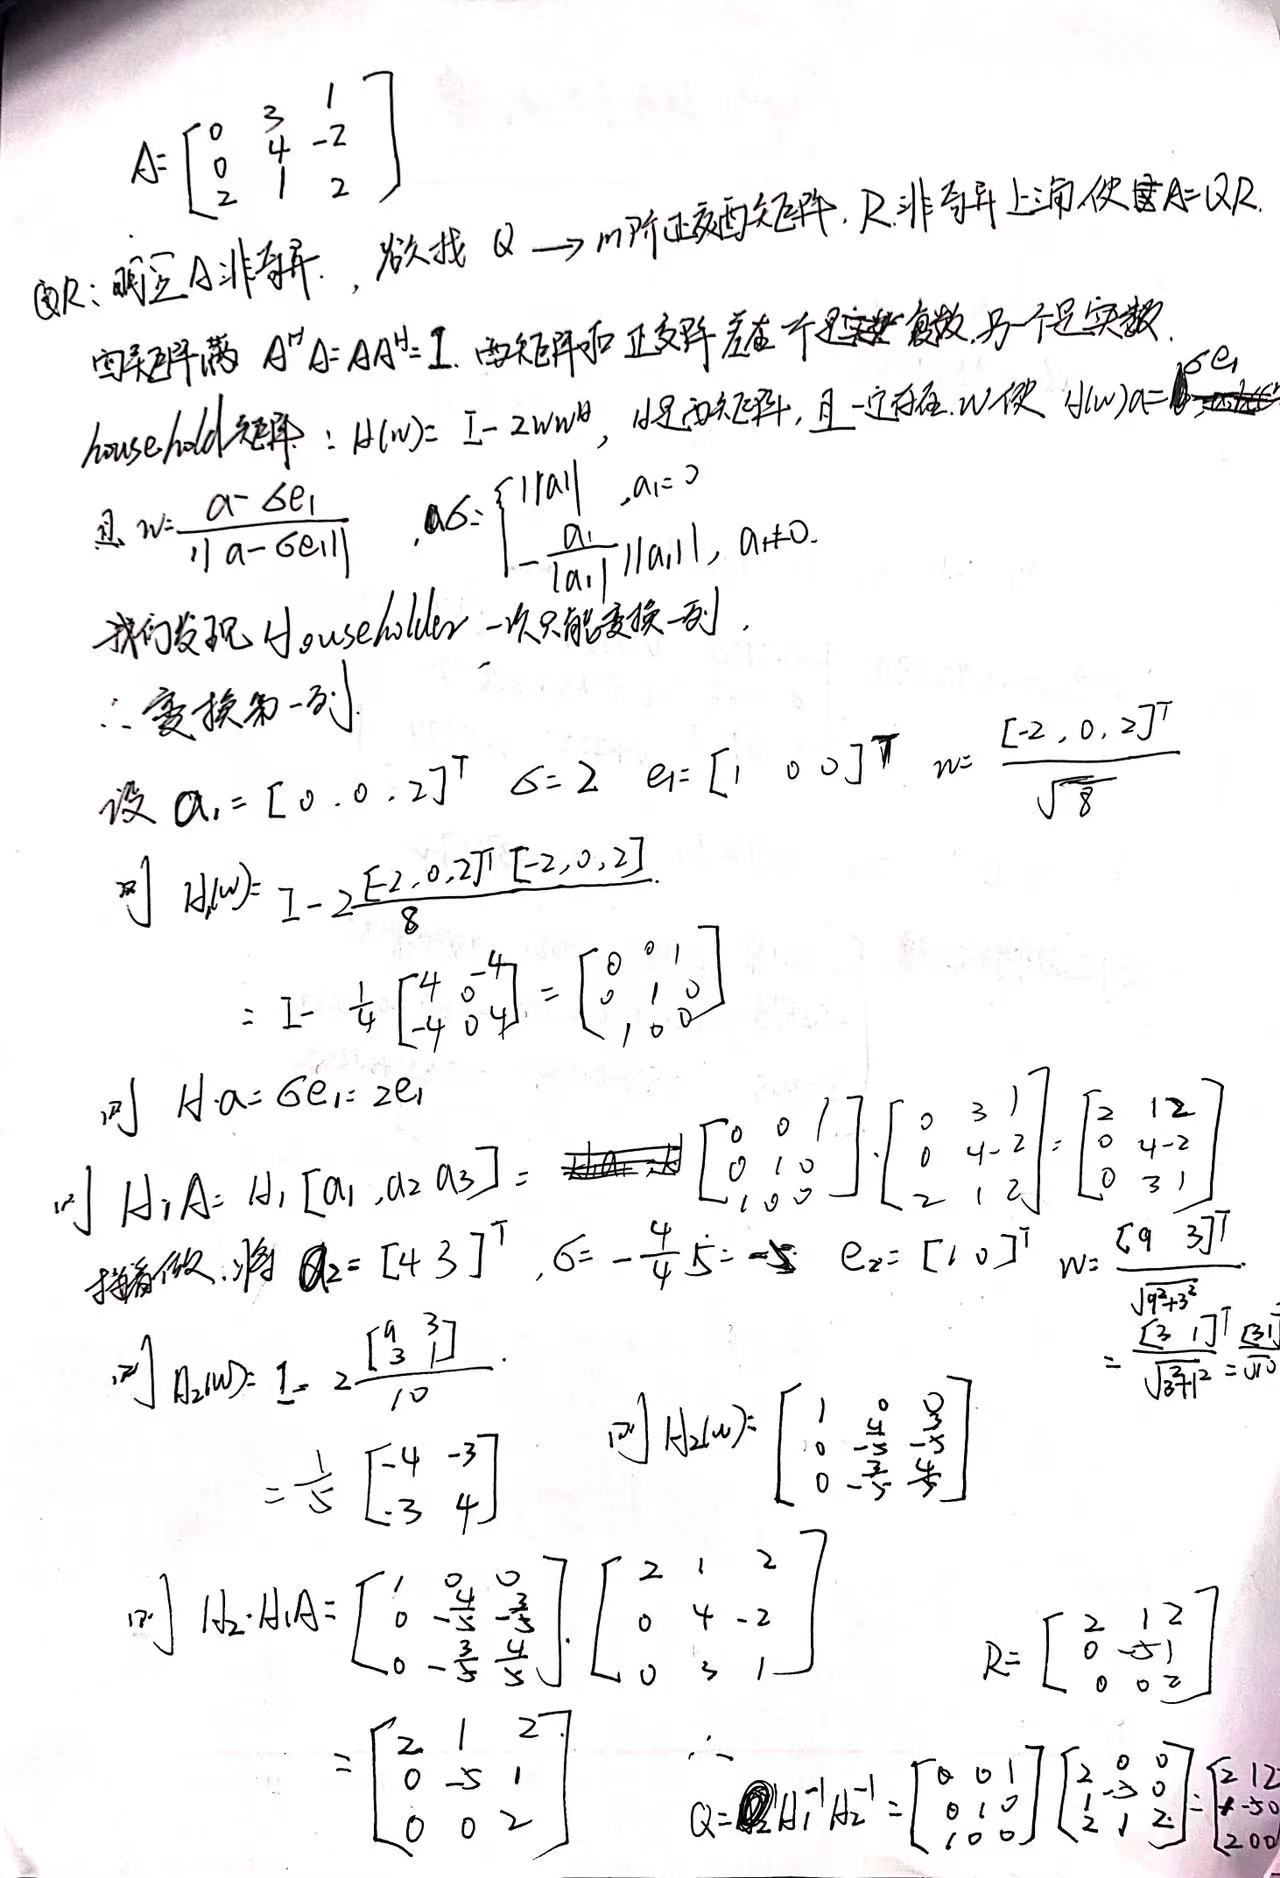 A= [ 0 3 1
0 4 -2
2 1 2 ]
QR: 确定A非奇异, 欲找 Q → m阶正交酉矩阵, R非奇异上三角 使 A=QR.
酉矩阵满 AᴴA=AAᴴ=I. 酉矩阵和正交阵差在一个是复数,另一个是实数.
household矩阵: H(w)= I-2wwᴴ, H是酉矩阵, 且一定存在w使 H(w)a= σe₁
且 w= (a-σe₁)/||a-σe₁|| , σ= { ||a|| , a₁=0
-a₁/|a₁| ||a₁||, a₁≠0.
我们发现 Householder 一次只能变换一列.
∴ 变换第一列.
设 a₁=[0. 0. 2]ᵀ σ=2 e₁=[1 0 0]ᵀ w= [-2, 0, 2]ᵀ/√8
则 H₁(w)= I-2 [-2,0,2]ᵀ[-2,0,2]/8
= I- 1/4 [ 4 0 -4
-4 0 4 ] = [ 0 0 1
0 1 0
1 0 0 ]
则 H·a=σe₁=2e₁
则 H₁A= H₁[a₁,a₂ a₃]= [ 0 0 1
0 1 0
1 0 0 ] · [ 0 3 1
0 4 -2
2 1 2 ] = [ 2 1 2
0 4 -2
0 3 1 ]
接着做,将 a₂=[4 3]ᵀ, σ= -4/4 5= -5 e₂=[1 0]ᵀ w= [9 3]ᵀ/√9²+3²
= [3 1]ᵀ/√3²+1² = [3 1]/√10
则 H₂(w)= I- 2 [ 9 3
3 1 ]/10
= 1/5 [ -4 -3
-3 4 ]
则 H₂(w)= [ 1 0 0
0 -4/5 -3/5
0 -3/5 4/5 ]
则 H₂·H₁A= [ 1 0 0
0 -4/5 -3/5
0 -3/5 4/5 ] · [ 2 1 2
0 4 -2
0 3 1 ]
= [ 2 1 2
0 -5 1
0 0 2 ]
R= [ 2 1 2
0 -5 1
0 0 2 ]
∴ Q= H₁⁻¹H₂⁻¹ = [ 0 0 1
0 1 0
1 0 0 ] [ 2 0 0
1 -5 0
2 1 2 ] = [ 2 1 2
1 -5 0
2 0 0